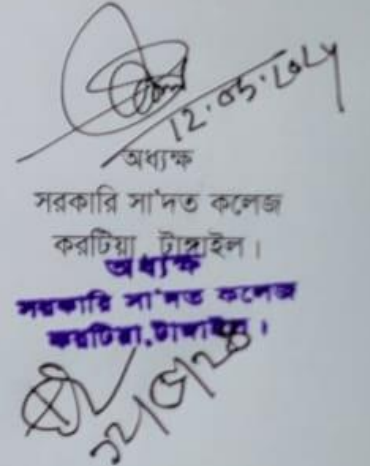 অধ্যক্ষ
সরকারি সা'দত কলেজ
করটিয়া টাঙ্গাইল।
অধ্যক্ষ
সরকারি সা'দত কলেজ
করটিয়া,টাঙ্গাইল।